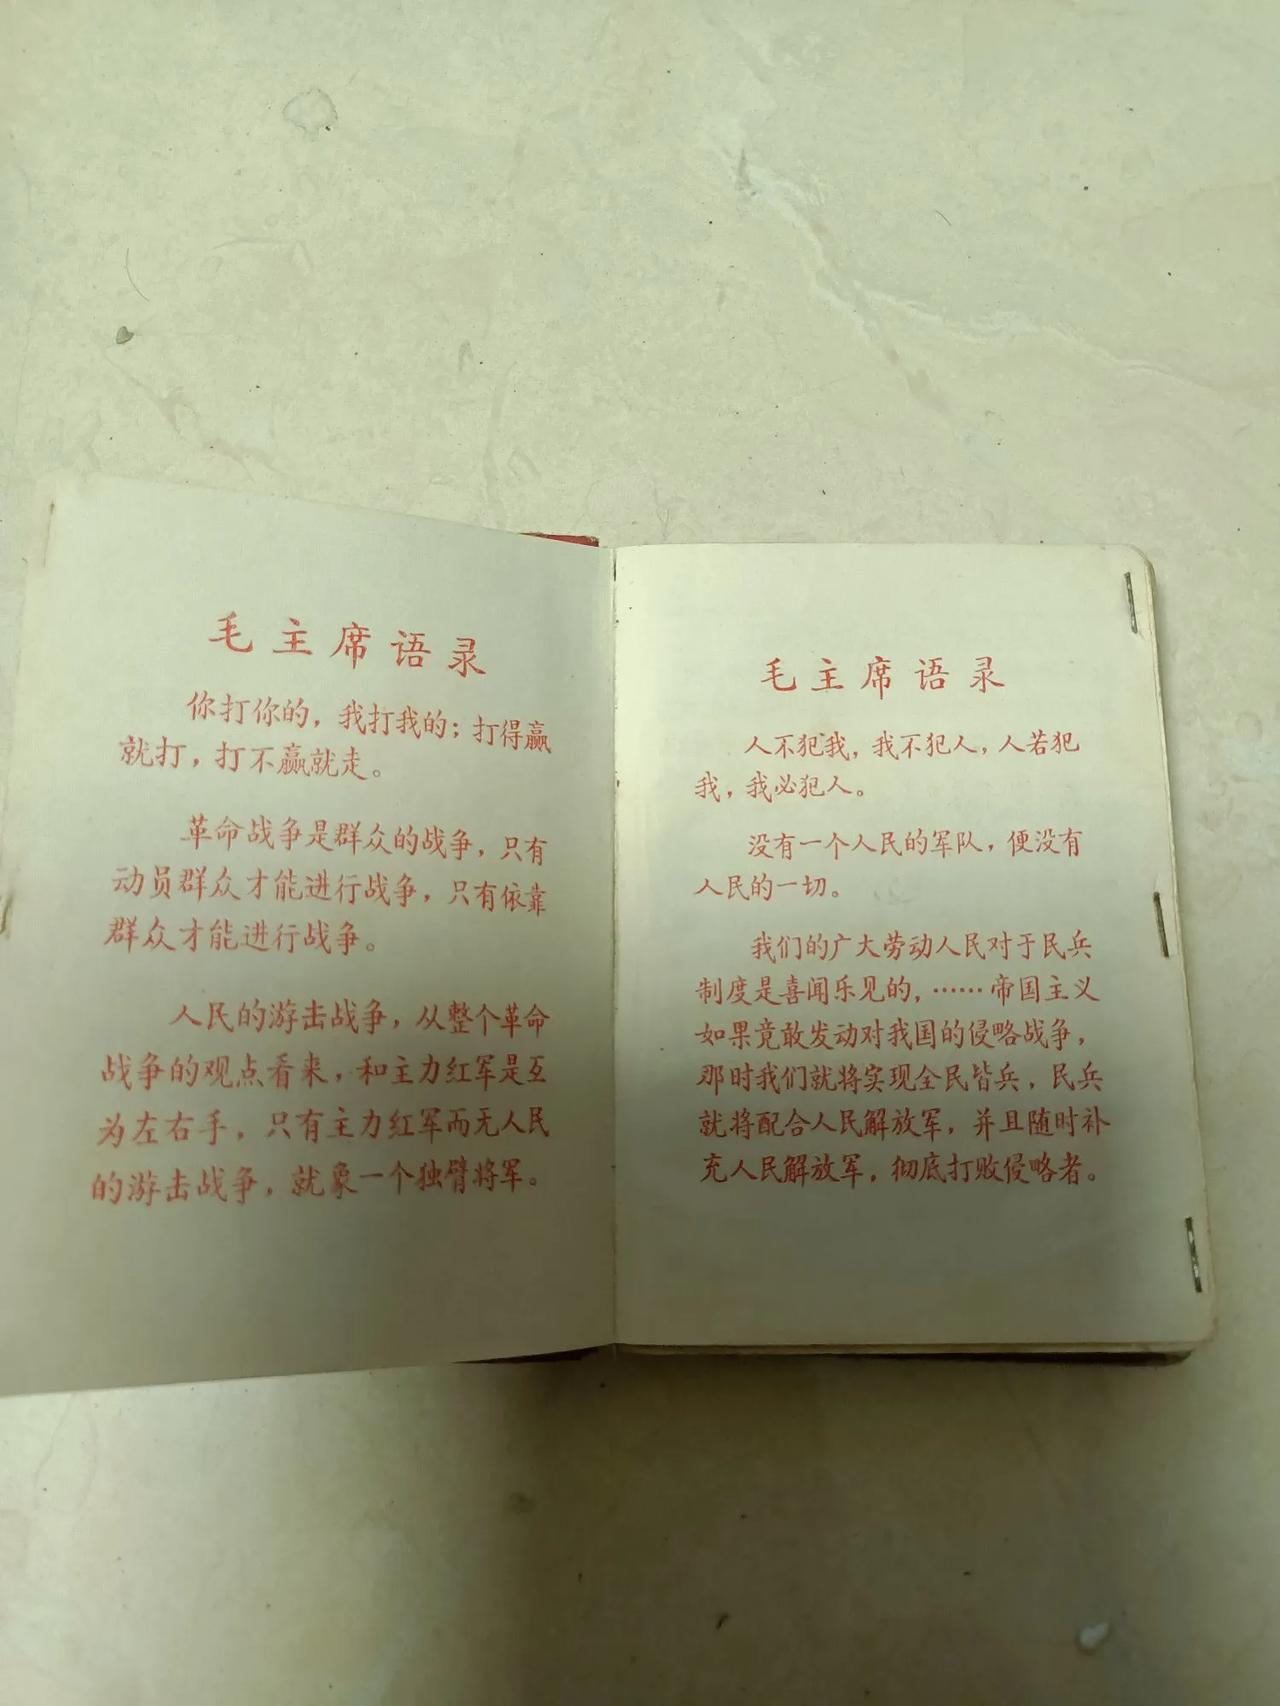 毛主席语录
你打你的，我打我的；打得赢
就打，打不赢就走。
革命战争是群众的战争，只有
动员群众才能进行战争，只有依靠
群众才能进行战争。
人民的游击战争，从整个革命
战争的观点看来，和主力红军是互
为左右手，只有主力红军而无人民
的游击战争，就象一个独臂将军。
毛主席语录
人不犯我，我不犯人，人若犯
我，我必犯人。
没有一个人民的军队，便没有
人民的一切。
我们的广大劳动人民对于民兵
制度是喜闻乐见的，……帝国主义
如果竟敢发动对我国的侵略战争，
那时我们就将实现全民皆兵，民兵
就将配合人民解放军，并且随时补
充人民解放军，彻底打败侵略者。